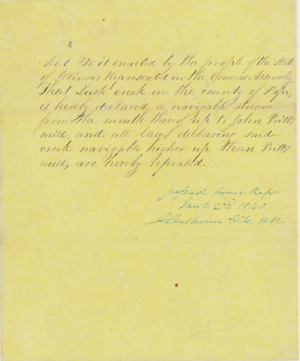 Sec 1 Be it enacted by the people of the State
of Illinois Represented in the General Assembly
That Lusk creek in the county of Pope,
is hereby declared a navigable stream
from the mouth thereof up to John Pritts
mill, and all laws declaring said
creek navigable higher up than Pritts
mill, are hereby repealed.
passed House Reps
Jany 2nd 1840
J Calhoun Clk H.R.